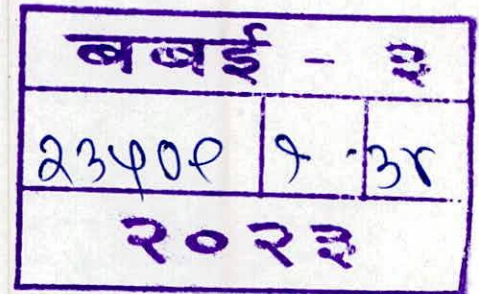 बबई - ३
२३५०९ १ ३४
२०२३